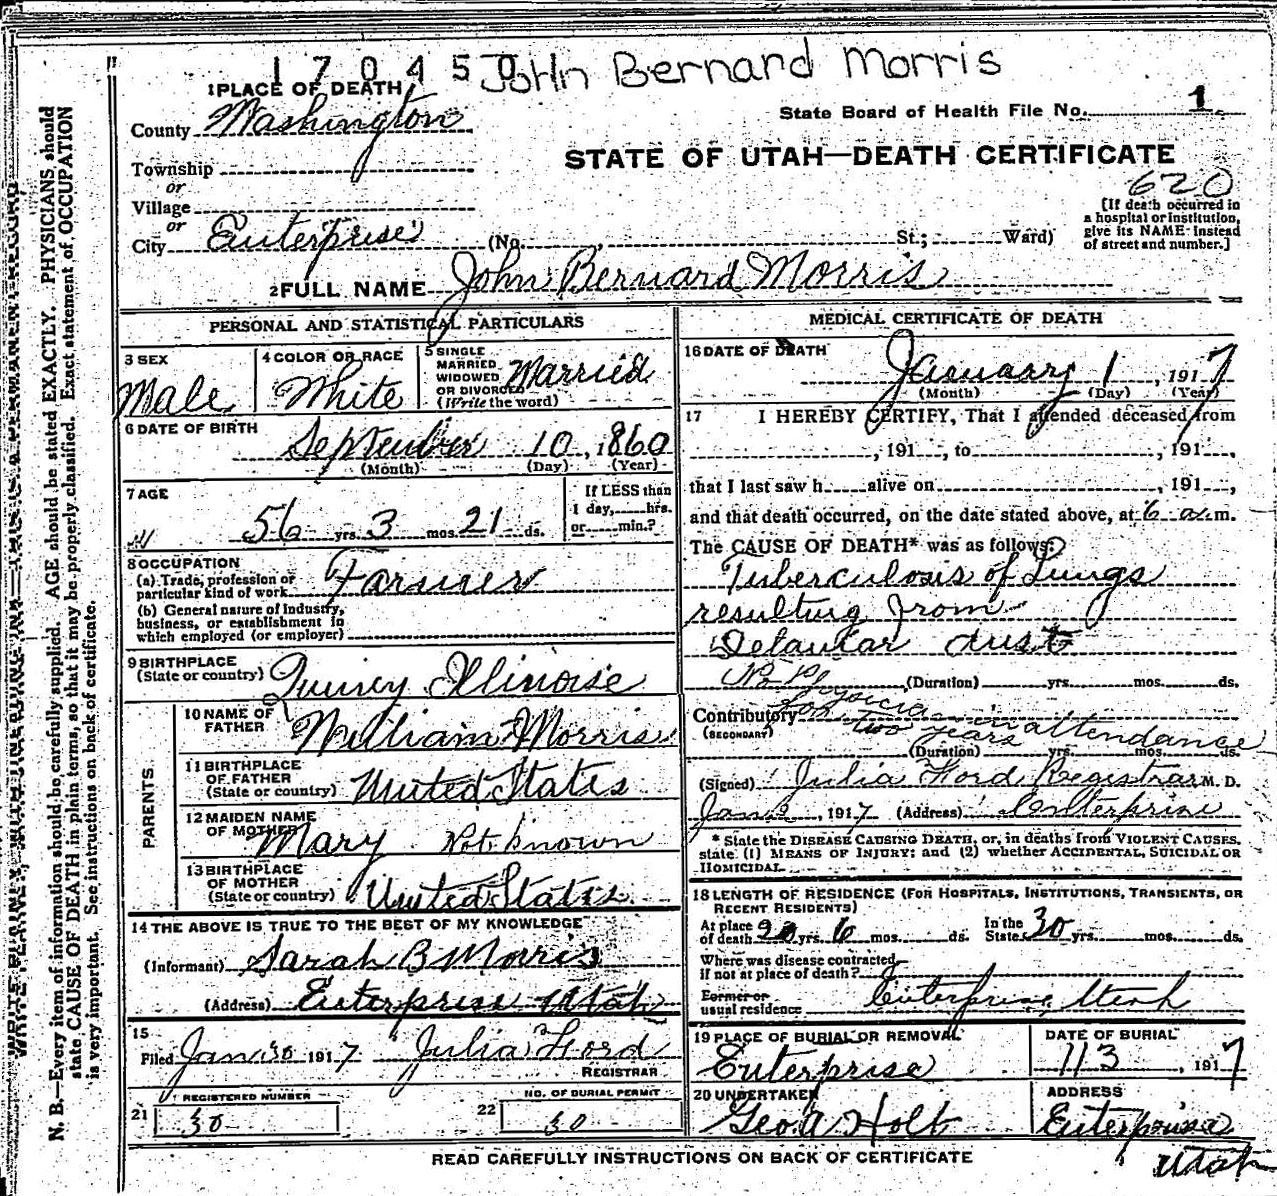 170450 John Bernard Morris
1 PLACE OF DEATH
County Washington
State Board of Health File No. 1
Township
STATE OF UTAH—DEATH CERTIFICATE
or
Village
620
or
City Enterprise (No. , St.; Ward)
[If death occurred in
a hospital or institution,
give its NAME instead
of street and number.]
2 FULL NAME John Bernard Morris
PERSONAL AND STATISTICAL PARTICULARS
3 SEX
Male
4 COLOR OR RACE
White
5 SINGLE
MARRIED
WIDOWED
OR DIVORCED
(Write the word)
Married
6 DATE OF BIRTH
September 10, 1860
(Month) (Day) (Year)
7 AGE
56 yrs. 3 mos. 21 ds.
If LESS than
1 day, hrs.
or min.?
8 OCCUPATION
(a) Trade, profession or
particular kind of work Farmer
(b) General nature of industry,
business, or establishment in
which employed (or employer)
9 BIRTHPLACE
(State or country) Quincy Illinoise
PARENTS
10 NAME OF
FATHER William Morris
11 BIRTHPLACE
OF FATHER
(State or country) United States
12 MAIDEN NAME
OF MOTHER Mary Not known
13 BIRTHPLACE
OF MOTHER
(State or country) United States
14 THE ABOVE IS TRUE TO THE BEST OF MY KNOWLEDGE
(Informant) Sarah B Morris
(Address) Enterprise Utah
15
Filed Jan 30 1917 Julia Ford
REGISTRAR
REGISTERED NUMBER
21 30
NO. OF BURIAL PERMIT
22 30
MEDICAL CERTIFICATE OF DEATH
16 DATE OF DEATH
January 1, 1917
(Month) (Day) (Year)
17 I HEREBY CERTIFY, That I attended deceased from
, 191 , to , 191 ,
that I last saw h alive on , 191 ,
and that death occurred, on the date stated above, at 6 a.m.
The CAUSE OF DEATH* was as follows:
Tuberculosis of Lungs
resulting from
Delamar dust
No physician in attendance
for two years
(Duration) yrs. mos. ds.
Contributory
(SECONDARY)
(Duration) yrs. mos. ds.
(Signed) Julia Ford Registrar M. D.
Jan , 1917 (Address) Enterprise
* State the DISEASE CAUSING DEATH, or, in deaths from VIOLENT CAUSES,
state (1) MEANS OF INJURY; and (2) whether ACCIDENTAL, SUICIDAL OR
HOMICIDAL.
18 LENGTH OF RESIDENCE (FOR HOSPITALS, INSTITUTIONS, TRANSIENTS, OR
RECENT RESIDENTS)
At place
of death 20 yrs. 6 mos. ds.
In the
State 30 yrs. mos. ds.
Where was disease contracted,
if not at place of death?
Former or
usual residence Enterprise, Utah
19 PLACE OF BURIAL OR REMOVAL
Enterprise
DATE OF BURIAL
1 / 3, 1917
20 UNDERTAKER
Geo. A Holt
ADDRESS
Enterprise
Utah
READ CAREFULLY INSTRUCTIONS ON BACK OF CERTIFICATE
N. B.—Every item of information should be carefully supplied. AGE should be stated EXACTLY. PHYSICIANS should
state CAUSE OF DEATH in plain terms, so that it may be properly classified. Exact statement of OCCUPATION
is very important. See instructions on back of certificate.